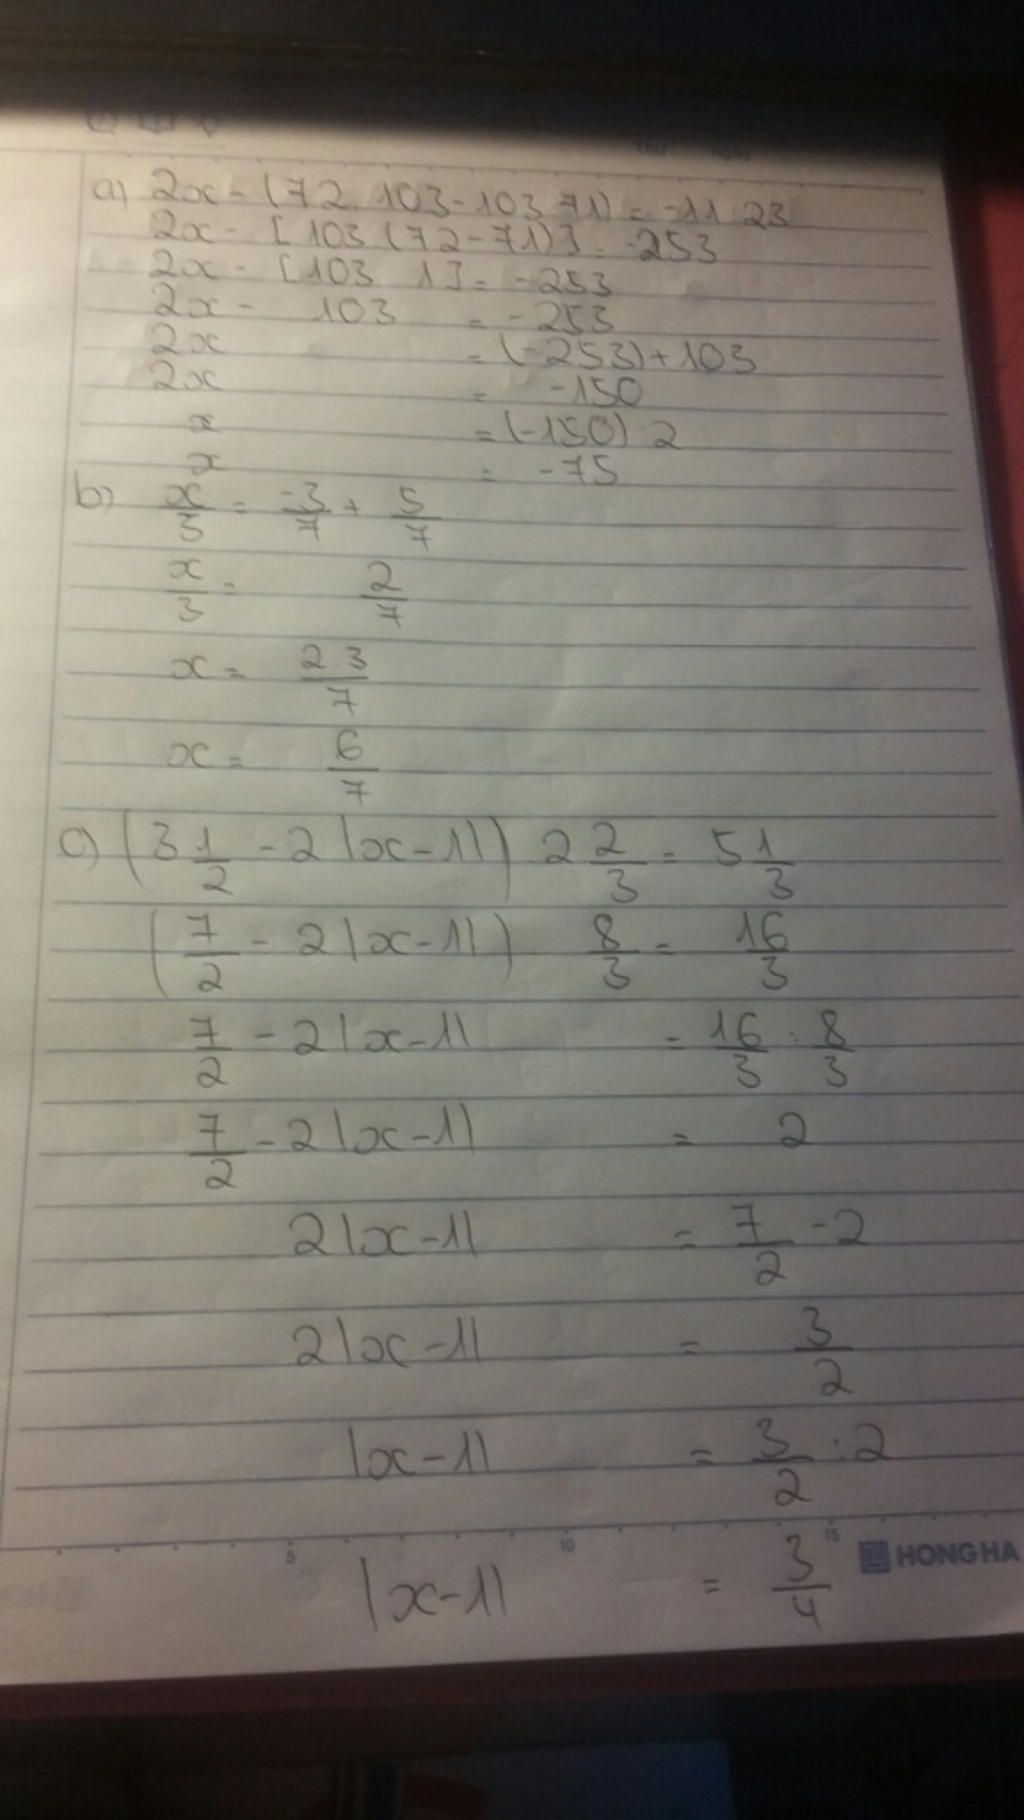 a) 2x - (72 103 - 103 71) = -11 23
2x - [103 (72 - 71)] = -253
2x - [103 1] = -253
2x - 103 = -253
2x = (-253) + 103
2x = -150
x = (-150) 2
x = -75
b) x/3 = -3/7 + 5/7
x/3 = 2/7
x = 2.3/7
x = 6/7
c) (3 1/2 - 2|x-1|) 2 2/3 = 5 1/3
(7/2 - 2|x-1|) 8/3 = 16/3
7/2 - 2|x-1| = 16/3 : 8/3
7/2 - 2|x-1| = 2
2|x-1| = 7/2 - 2
2|x-1| = 3/2
|x-1| = 3/2 : 2
5 10 15 HONG HA
|x-1| = 3/4